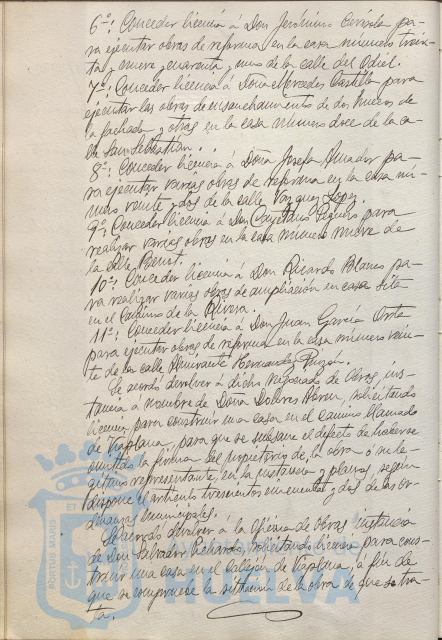 6º: Conceder licencia á Don Jerónimo pa-
ra ejecutar obras de reforma en la casa número trein-
ta y nueve y cuarenta y uno de la calle del Odiel.
7º: Conceder licencia á Doña Mercedes Castilla para
ejecutar las obras de ensanchamiento de dos huecos de
la fachada y otras en la casa número doce de la ca-
lle San Sebastián.
8º: Conceder licencia á Doña Josefa Amador pa-
ra ejecutar varias obras de reforma en la casa nú-
mero veinte y dos de la calle Vazquez Lopez.
9º: Conceder licencia á Don Cayetano para
realizar varias obras en la casa número nueve de
la calle Benot.
10º: Conceder licencia á Don Ricardo Blanco pa-
ra realizar varias obras de ampliación en casa sita
en el Camino de la Rivera.
11º: Conceder licencia á Don Juan García Orta
para ejecutar obras de reforma en la casa número vein-
te de la calle Almirante Hernandez Pinzón.
Se acordó devolver á dicho Negociado de Obras, ins-
tancia á nombre de Doña Dolores solicitando
licencia para construir una casa en el camino llamado
de Viaplana, para que se subsane el defecto de haberse
omitido la firma del propietario de la obra ó su le-
gítimo representante, en la instancia y planos, según
dispone el artículo trescientos cincuenta y dos de las or-
denanzas municipales.
Se acordó devolver á la Oficina de obras instancia
de Don Salvador solicitando licencia para cons-
truir una casa en el Callejón de Viaplana, á fin de
que se compruebe la situación de la obra de que se tra-
ta.
PORTUS MARIS ET
HUELVA